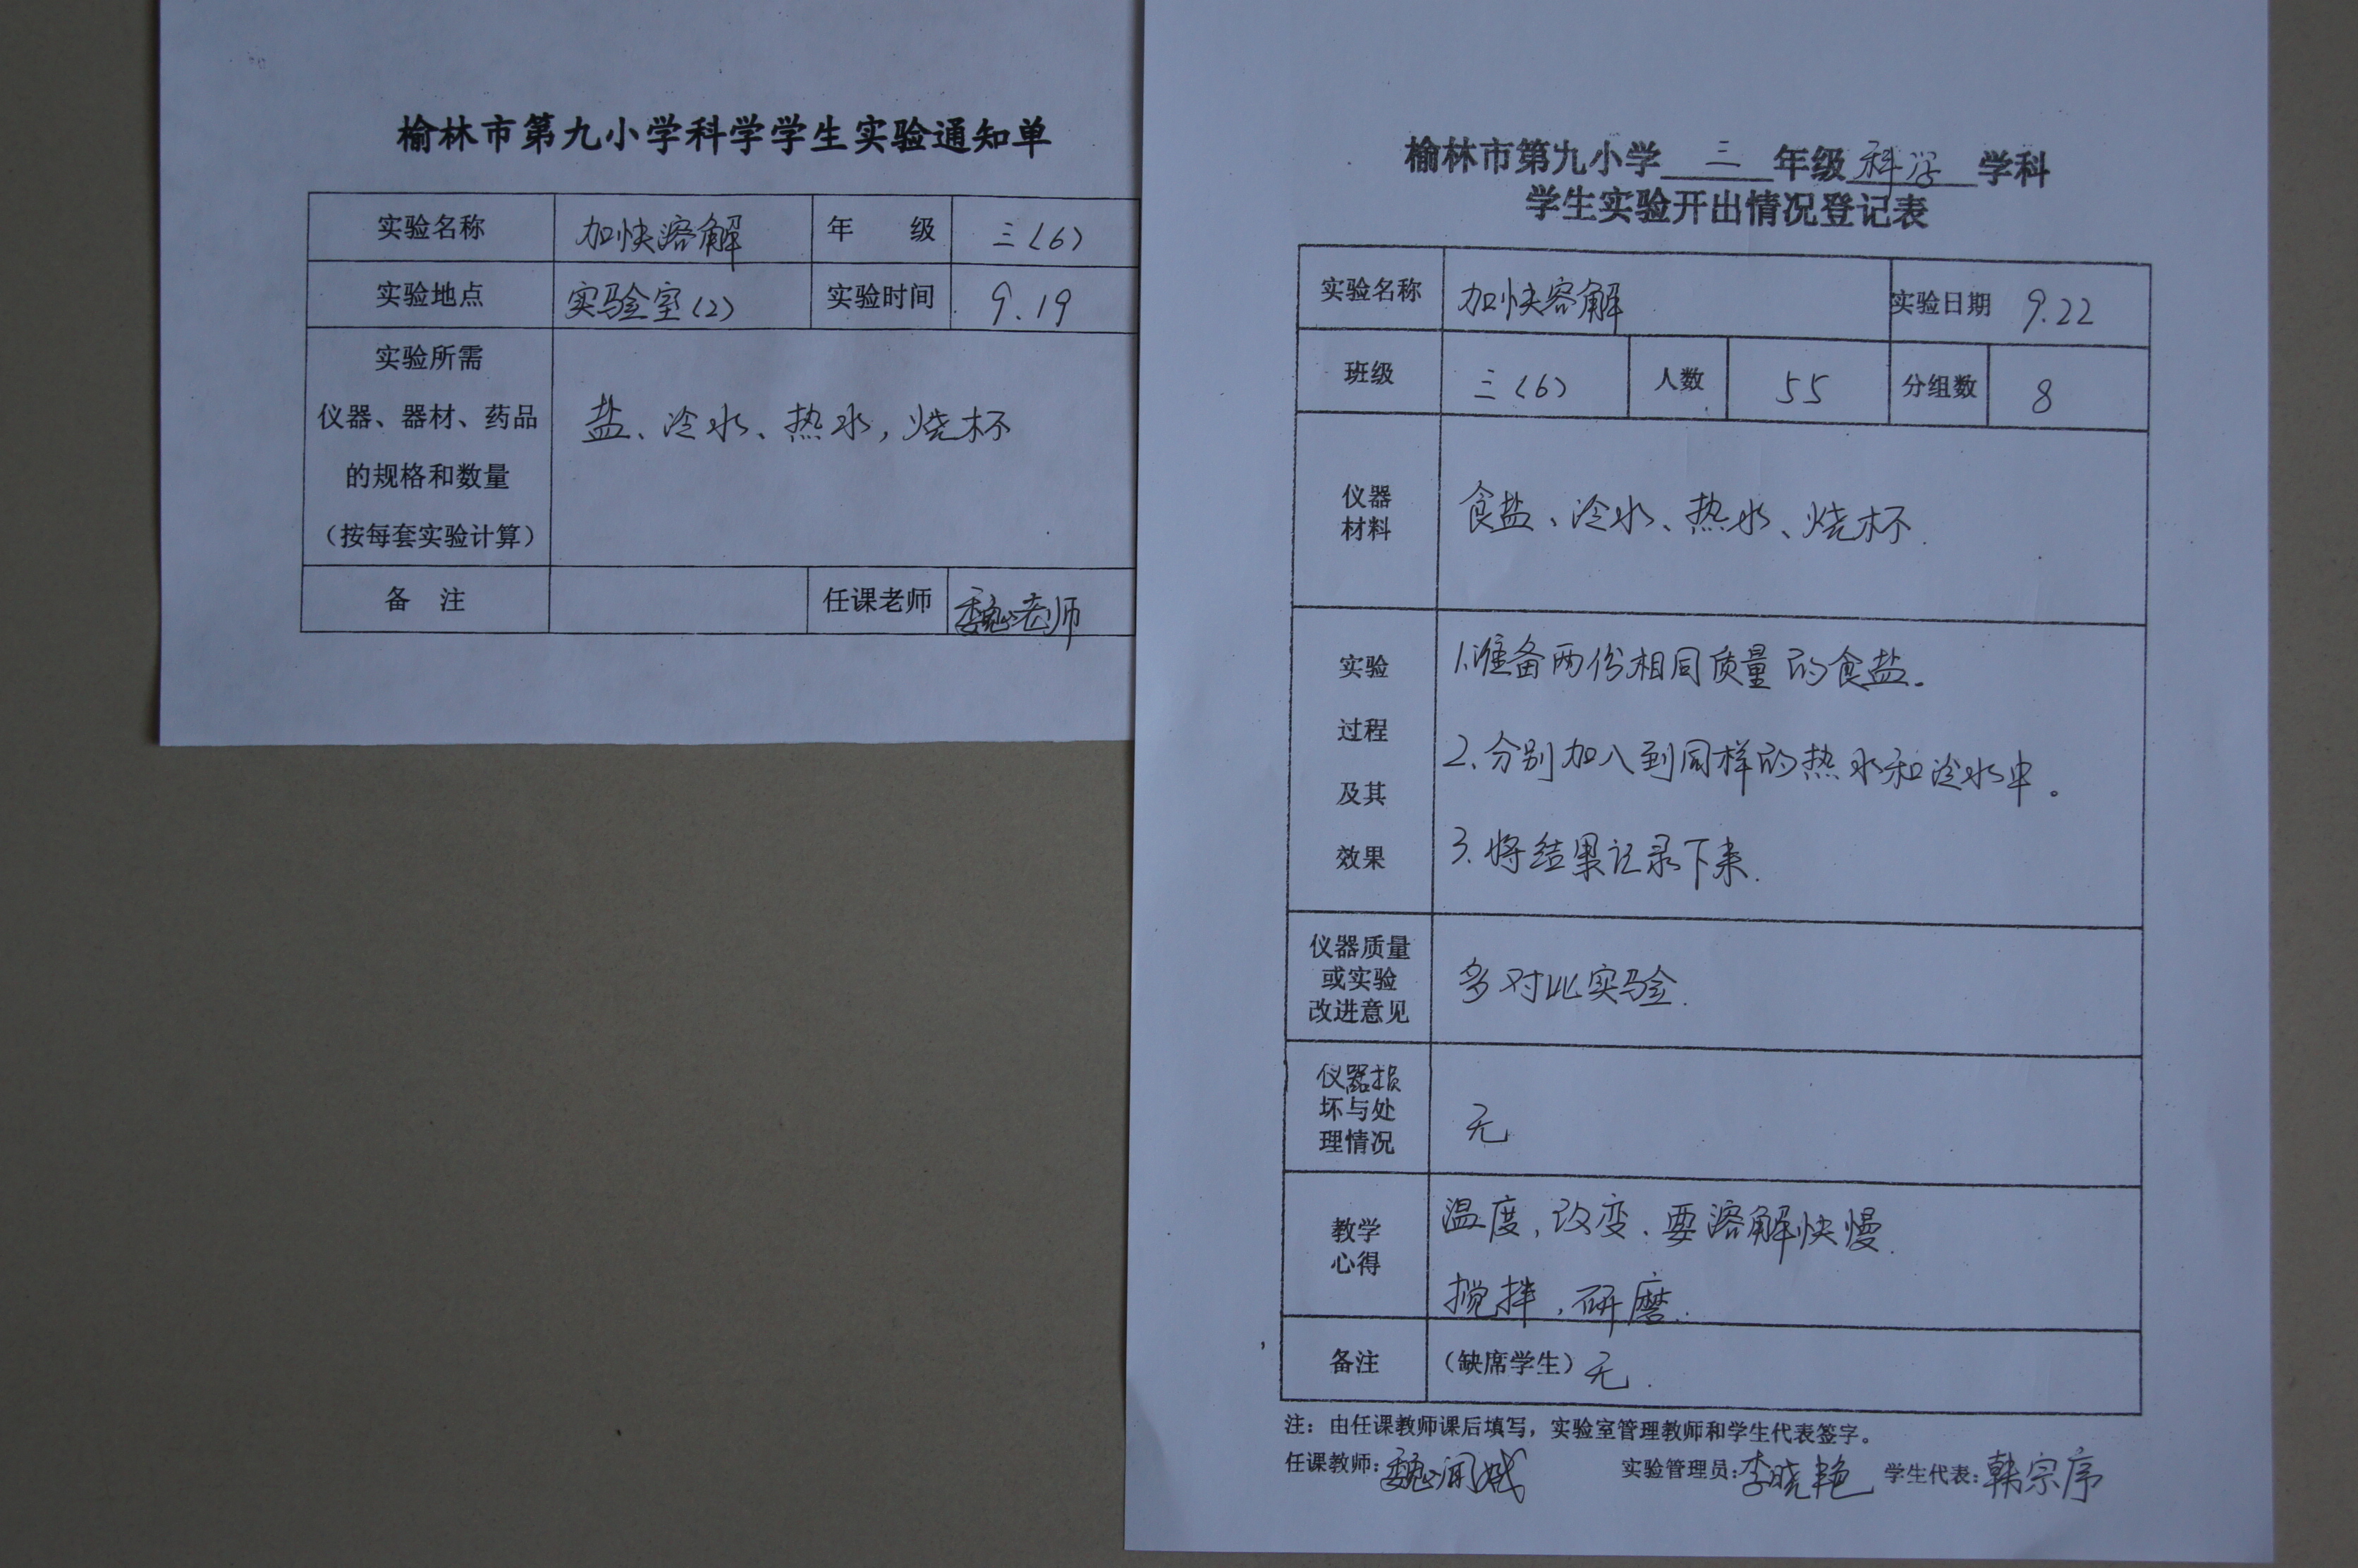 榆林市第九小学科学学生实验通知单
实验名称 加快溶解 年 级 三(6)
实验地点 实验室(2) 实验时间 9.19
实验所需
仪器、器材、药品
的规格和数量
(按每套实验计算)
盐、冷水、热水,烧杯
备 注 任课老师 魏老师
榆林市第九小学 三 年级 科学 学科
学生实验开出情况登记表
实验名称 加快容解 实验日期 9.22
班级 三(6) 人数 55 分组数 8
仪器
材料
食盐、冷水、热水、烧杯.
实验
过程
及其
效果
1.准备两份相同质量的食盐。
2、分别加入到同样的热水和冷水中。
3、将结果记录下来.
仪器质量
或实验
改进意见
多对比实验.
仪器损
坏与处
理情况
无
教学
心得
温度、改变、要溶解快慢.
搅拌,研磨.
备注 (缺席学生) 无.
注:由任课教师课后填写,实验室管理教师和学生代表签字。
任课教师: 魏 实验管理员:李晓艳 学生代表:韩宗序